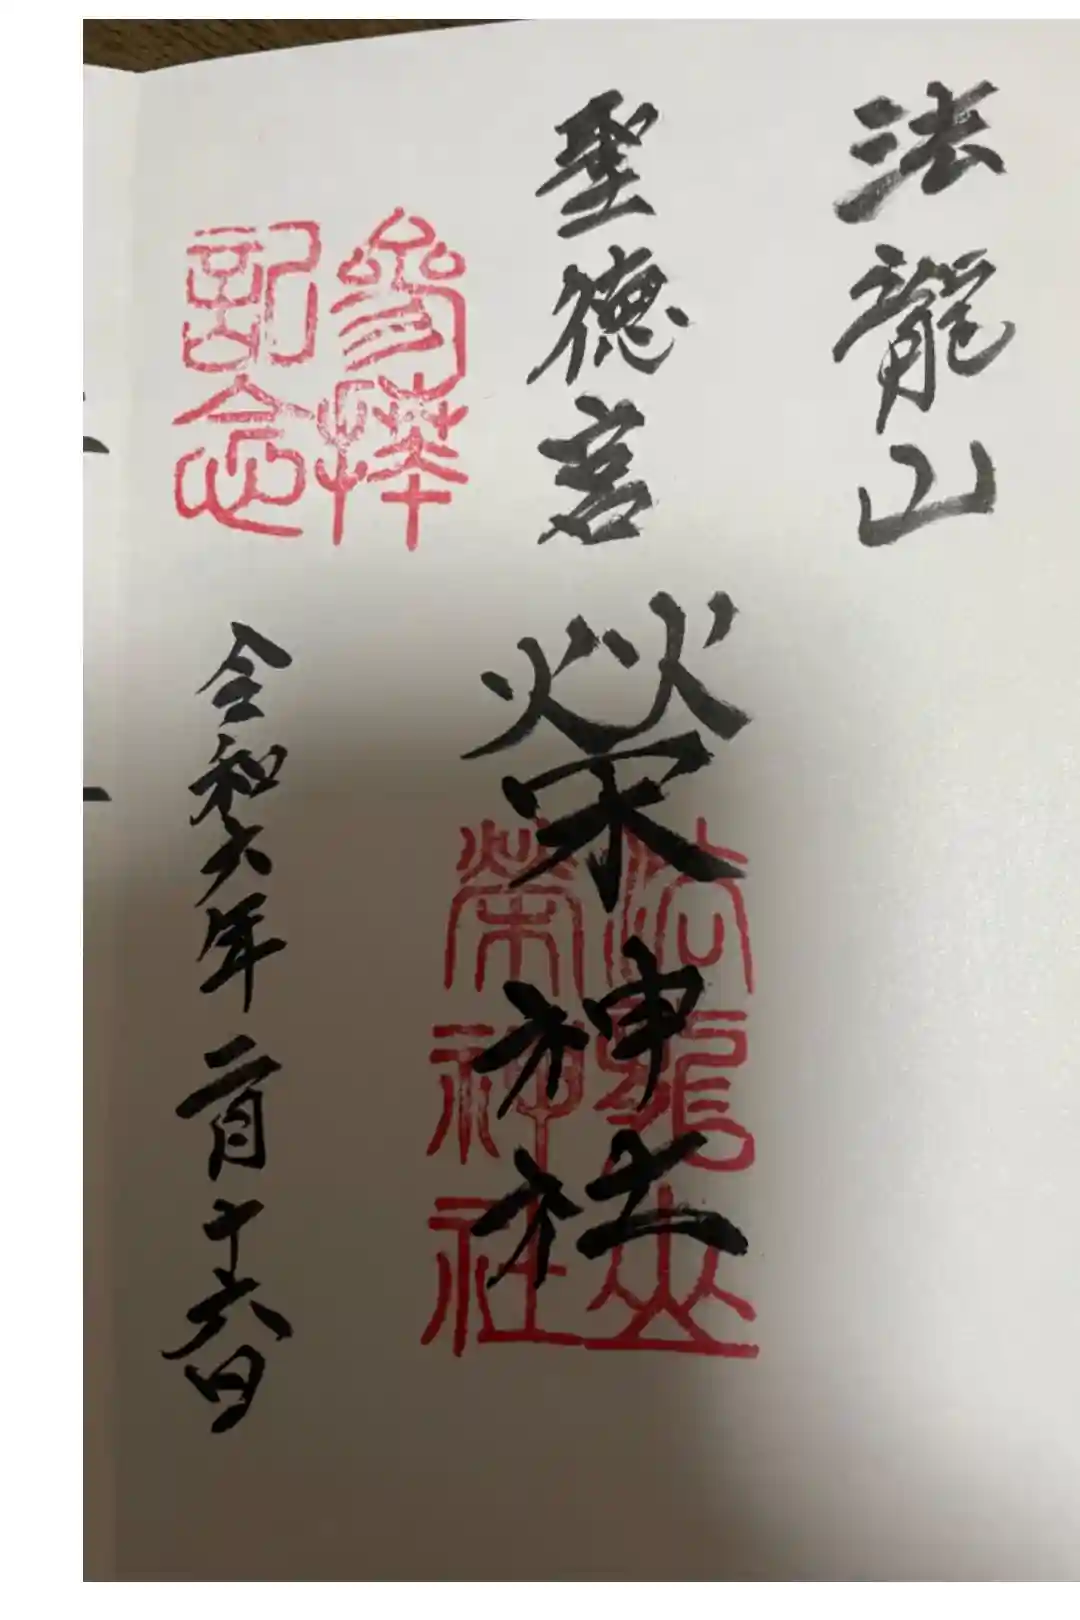 法龍山
聖徳宮
榮神社
法龍山
榮神社
参拝
記念
令和六年二月十六日